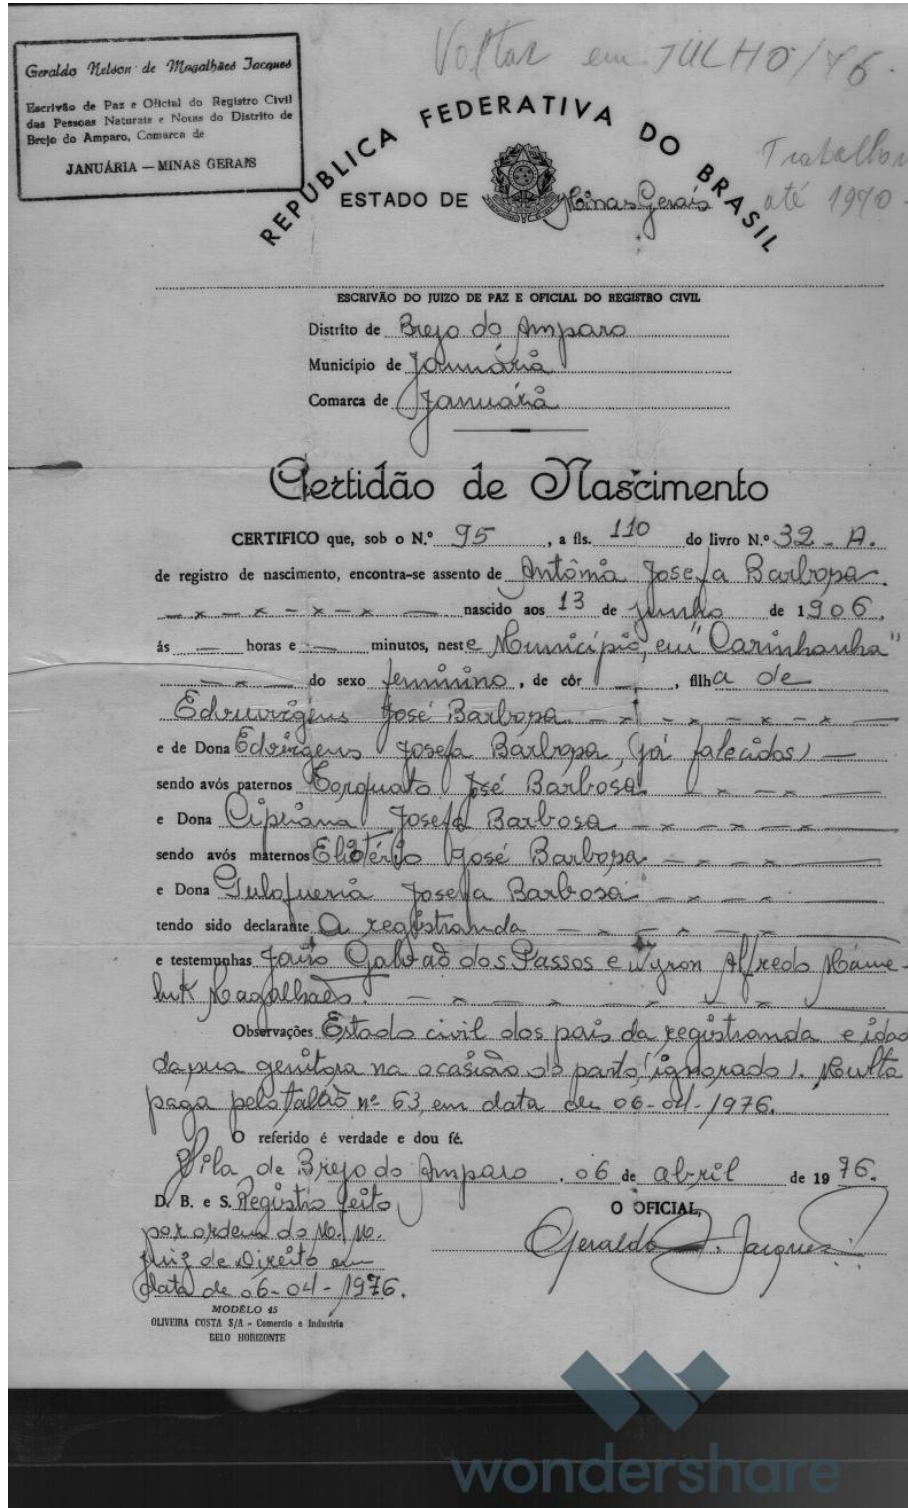 Geraldo Nelson de Magalhães Jacques
Escrivão de Paz e Oficial do Registro Civil
das Pessoas Naturais e Notas do Distrito de
Brejo do Amparo, Comarca de
JANUÁRIA — MINAS GERAIS
Voltar em JULHO/76.
Trabalhou
até 1970.
REPÚBLICA FEDERATIVA DO BRASIL
ESTADO DE Minas Gerais
ESCRIVÃO DO JUIZO DE PAZ E OFICIAL DO REGISTRO CIVIL
Distrito de Brejo do Amparo
Município de Januária
Comarca de Januária
Certidão de Nascimento
CERTIFICO que, sob o N.º 95, a fls. 110 do livro N.º 32-A.
de registro de nascimento, encontra-se assento de Antônia Josefa Barbosa.
— x — x — x — x — nascido aos 13 de junho de 1906.
ás — horas e — minutos, neste Município, em "Carinhanha"
— x — do sexo feminino, de côr —, filha de
Eduvirgens José Barbosa — x — x — x — x —
e de Dona Edvirgens Josefa Barbosa, (já falecidos) —
sendo avós paternos Torquato José Barbosa — x — x —
e Dona Cipriana Josefa Barbosa — x — x — x —
sendo avós maternos Eliotério José Barbosa — x — x —
e Dona Josefa Barbosa — x — x —
tendo sido declarante A registranda — x — x — x —
e testemunhas Jairo Galvão dos Passos e Wyron Alfredo Máme-
luk Magalhães. — x — x — x — x —
Observações Estado civil dos pais da registranda e idad
da sua genitora na ocasião do parto, (ignorado). Multa
paga pelo talão nº 63, em data de 06-04-1976.
O referido é verdade e dou fé.
Vila de Brejo do Amparo, 06 de abril de 1976.
D. B. e S. Registro feito
por ordem do M. M.
Juiz de Direito em
data de 06-04-1976.
O OFICIAL,
Geraldo N. Jacques
MODÊLO 45
OLIVEIRA COSTA S/A - Comercio e Industria
BELO HORIZONTE
wondershare